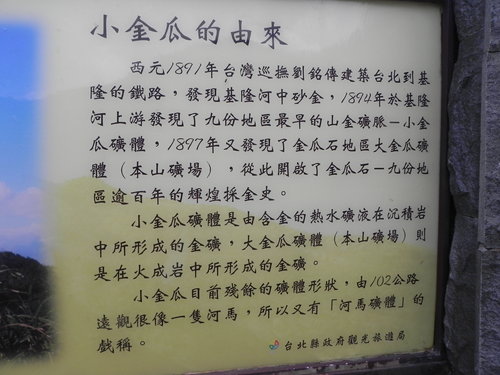 小金瓜的由來
西元1891年台灣巡撫劉銘傳建築台北到基
隆的鐵路，發現基隆河中砂金，1894年於基隆
河上游發現了九份地區最早的山金礦脈－小金
瓜礦體，1897年又發現了金瓜石地區大金瓜礦
體（本山礦場），從此開啟了金瓜石－九份地
區逾百年的輝煌採金史。
小金瓜礦體是由含金的熱水礦液在沉積岩
中所形成的金礦，大金瓜礦體（本山礦場）則
是在火成岩中所形成的金礦。
小金瓜目前殘餘的礦體形狀，由102公路
遠觀很像一隻河馬，所以又有「河馬礦體」的
戲稱。
台北縣政府觀光旅遊局